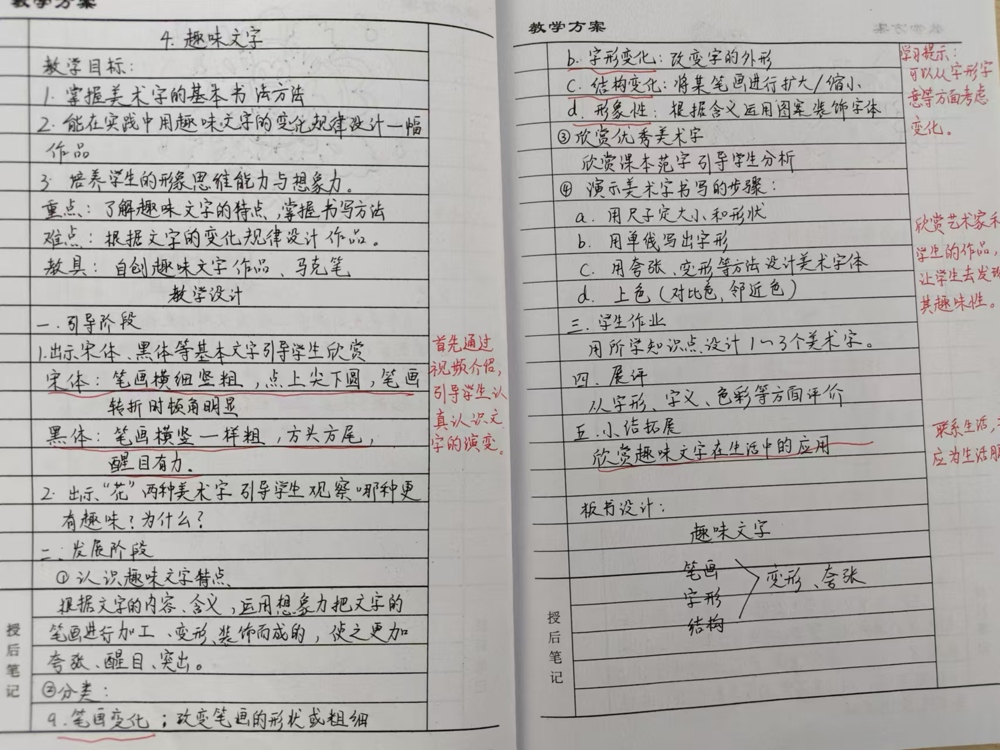 教学方案
4. 趣味文字
教学目标:
1. 掌握美术字的基本书法方法
2. 能在实践中用趣味文字的变化规律设计一幅
作品
3. 培养学生的形象思维能力与想象力。
重点: 了解趣味文字的特点,掌握书写方法
难点: 根据文字的变化规律设计作品。
教具: 自创趣味文字作品、马克笔
教学设计
一. 引导阶段
1.出示宋体、黑体等基本文字引导学生欣赏
宋体: 笔画横细竖粗,点上尖下圆,笔画
转折时顿角明显
黑体: 笔画横竖一样粗,方头方尾,
醒目有力.
2. 出示“花”两种美术字引导学生观察:哪种更
有趣味?为什么?
二. 发展阶段
①认识趣味文字特点
根据文字的内容、含义,运用想象力把文字的
笔画进行加工、变形、装饰而成的,使之更加
夸张、醒目、突出。
②分类:
a.笔画变化;改变笔画的形状或粗细
首先通过
视频介绍,
引导学生认
真认识文
字的演变。
授后笔记
教学方案
b. 字形变化: 改变字的外形
c. 结构变化: 将某笔画进行扩大/缩小
d. 形象性: 根据含义运用图案装饰字体
③欣赏优秀美术字
欣赏课本范字引导学生分析
④ 演示美术字书写的步骤:
a. 用尺子定大小和形状
b. 用单线写出字形
c. 用夸张、变形等方法设计美术字体
d. 上色(对比色,邻近色)
三. 学生作业
用所学知识点设计1~3个美术字。
四. 展评
从字形、字义、色彩等方面评价
五. 小结拓展
欣赏趣味文字在生活中的应用
板书设计:
趣味文字
笔画
字形
结构
变形、夸张
学习提示:
可以从字形字
意等方面考虑
变化。
欣赏艺术家和
学生的作品,
让学生去发现
其趣味性。
联系生活,
应为生活服
授后笔记